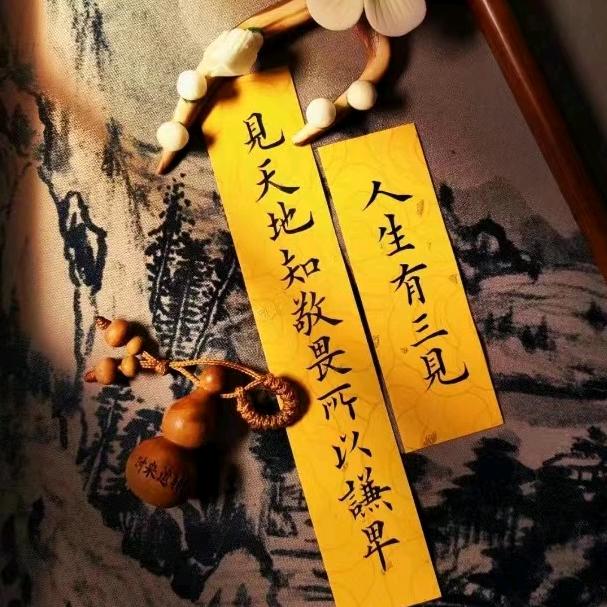 人生有三見
見天地知敬畏所以謙卑